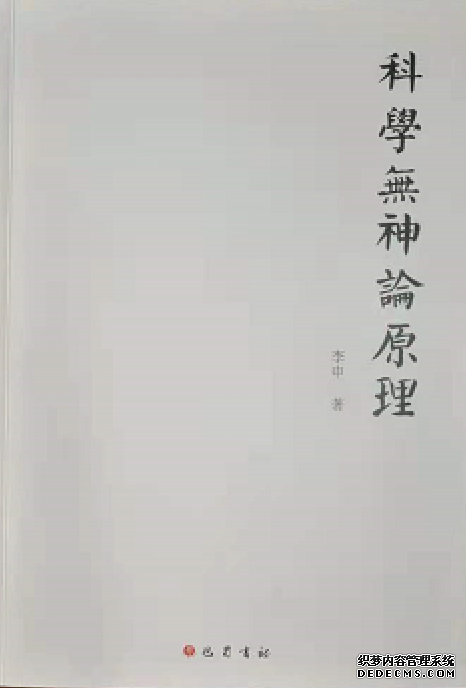 科學無神論原理
李申 著
巴蜀書社
织梦内容管理系统
DEDECMS.COM